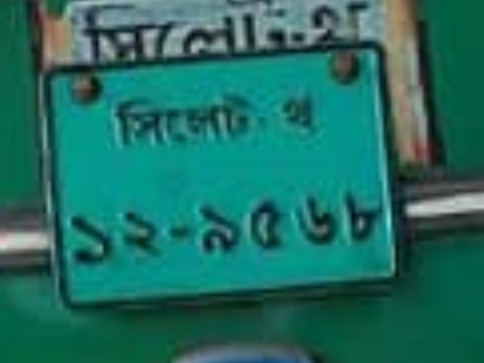 সিলেট-থ
সিলেট-থ
১২-৯৫৬৮